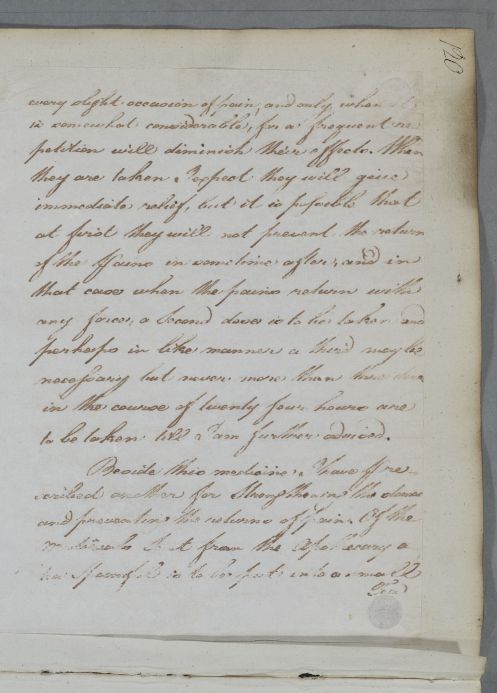 120
every slight occasion of pain, and only when it
is somewhat considerable, for a frequent re
petition will diminish their effects. When
they are taken I expect they will give
immediate relief, but it is possible that
at first they will not prevent the return
of the Pains in sometime after, and in
that case when the pains return with
any force, a second dose is to be taken and
perhaps in like manner a third may be
necessary but never more than three doses
in the course of twenty four hours are
to be taken till I am further advised.
Beside this medicine, I have pre-
scribed another for Strengthening the
and preventing the returns of pain. Of the
sent from the Apothecary a
Tea Spoonful is to be put into a small
Tea